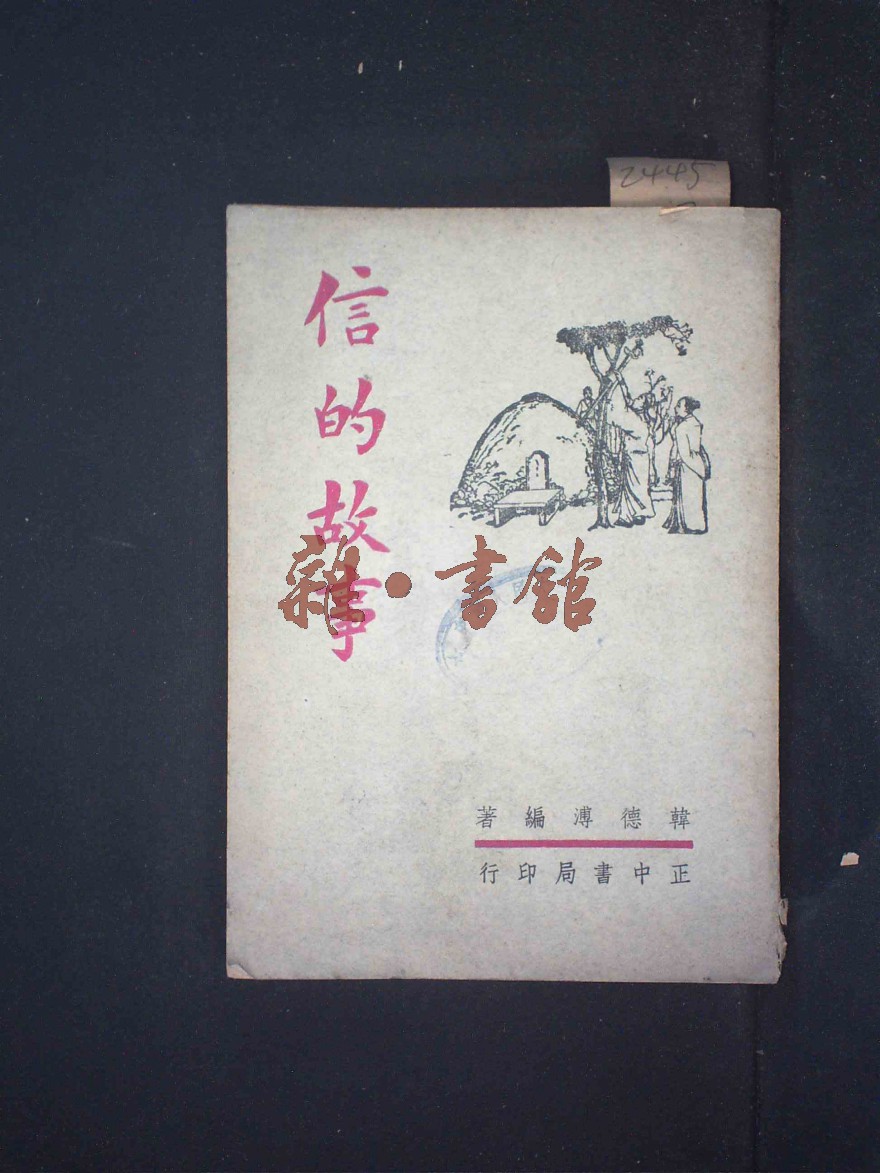 2445
信的故事
雜·書館
韓德溥編著
正中書局印行